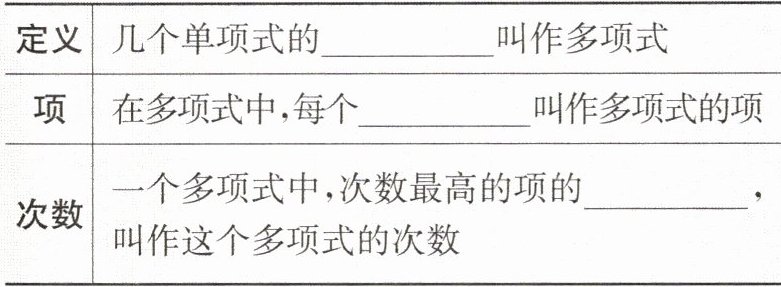 定义 几个单项式的__________叫作多项式
项 在多项式中,每个__________叫作多项式的项
次数 一个多项式中,次数最高的项的__________,
叫作这个多项式的次数